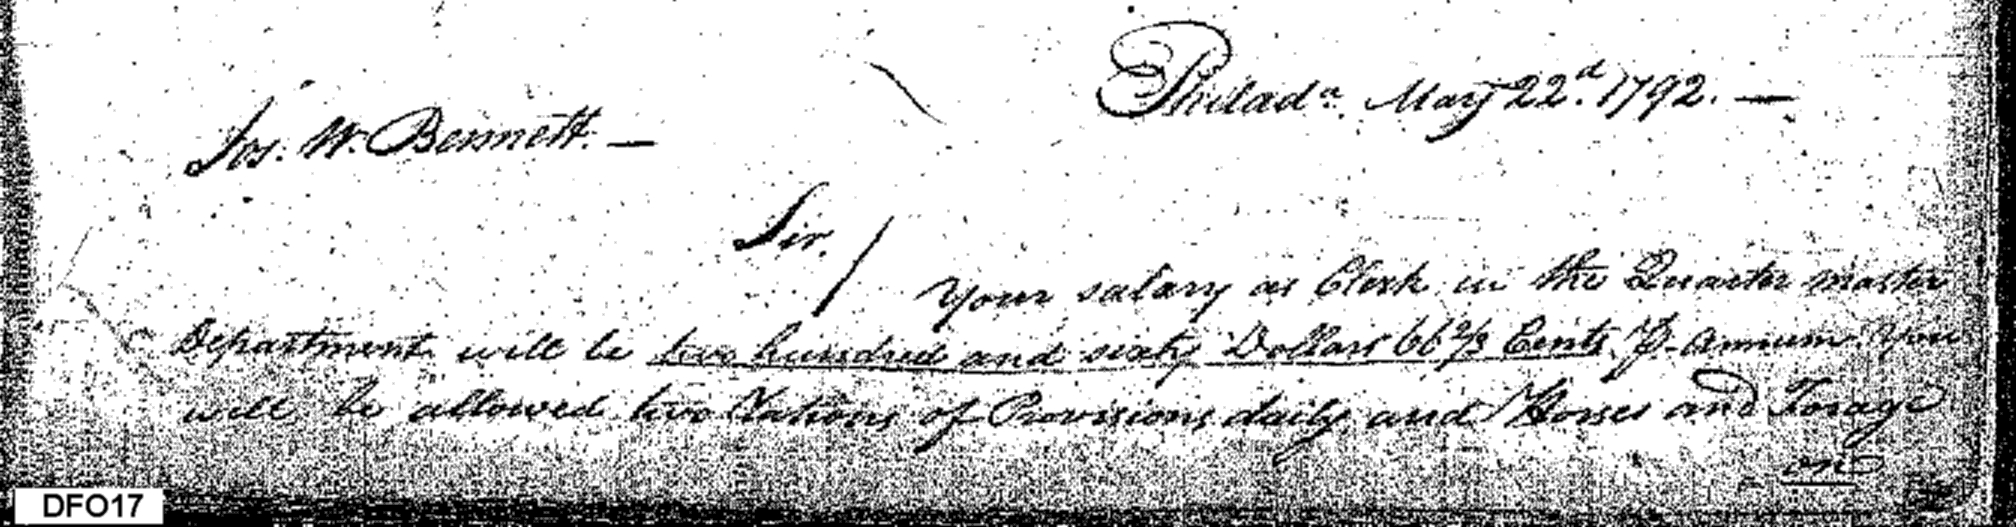 Philada. May 22d. 1792. —
Jos. W. Bennett. —
Sir,
Your salary as Clerk in the Quarter master
Department will be two hundred and sixty Dollars 66 2/3 Cents, ⅌. Annum. You
will be allowed two Rations of Provisions daily and Horses and Forage
on
DFO17